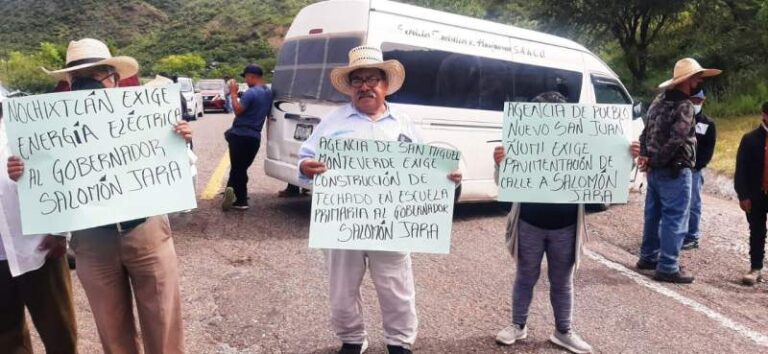 NOCHIXTLÁN EXIGE
ENERGÍA ELÉCTRICA
AL GOBERNADOR
SALOMÓN JARA
AGENCIA DE SAN MIGUEL
MONTEVERDE EXIGE
CONSTRUCIÓN DE
TECHADO EN ESCUELA
PRIMARIA AL GOBERNADOR
SALOMÓN JARA
AGENCIA DE PUEBLO
NUEVO SAN JUAN
ÑUMI EXIGE
PAVIMENTACIÓN DE
CALLE A SALOMÓN
JARA